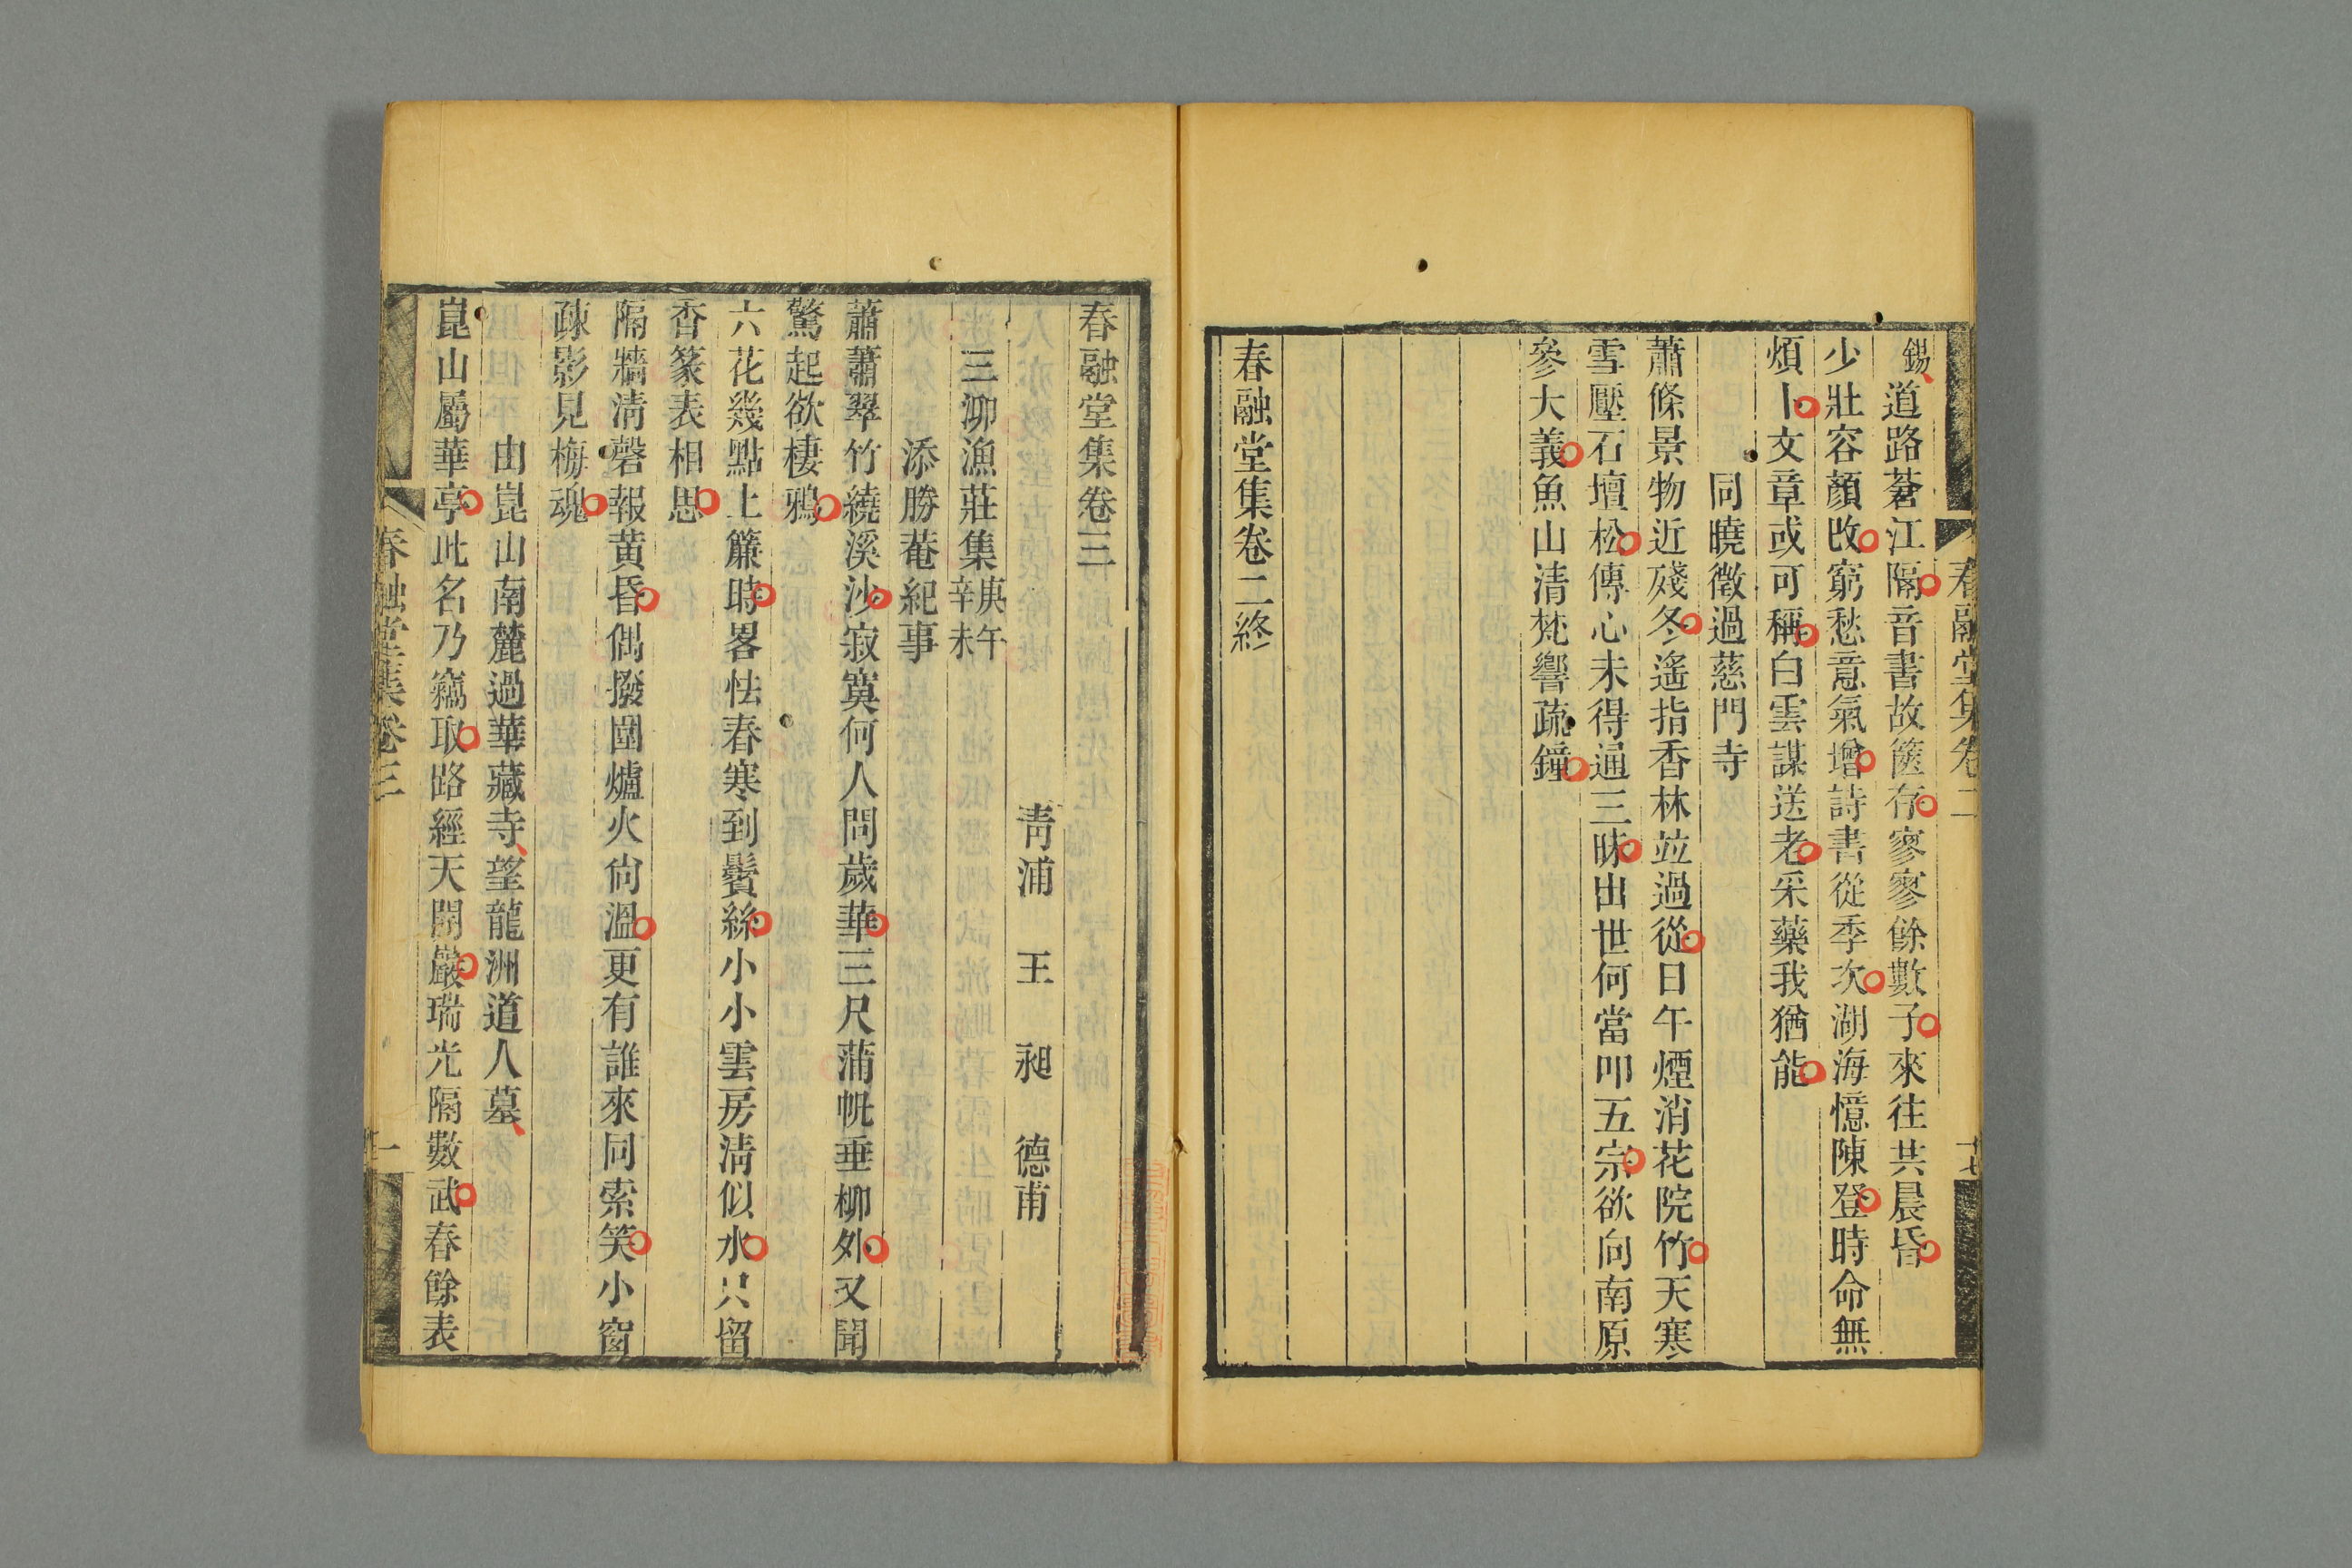 春融堂集卷二
十七
錫道路蒼江隔音書故篋存寥寥餘數子來往共晨昏
少壯容顏改窮愁意氣增詩書從季次湖海憶陳登時命無
煩卜文章或可稱白雲謀送老采藥我猶能
同曉徵過慈門寺
蕭條景物近殘冬遙指香林竝過從日午煙消花院竹天寒
雪壓石壇松傳心未得通三昧出世何當叩五宗欲向南原
參大義魚山清梵響疏鐘
春融堂集卷二終
春融堂集卷三
青浦 王 昶 德甫
三泖漁莊集庚午辛未
添勝菴紀事
蕭蕭翠竹繞溪沙寂寞何人問歲華三尺蒲帆垂柳外又聞
驚起欲棲鴉
六花幾點上簾時畧怯春寒到鬢絲小小雲房清似水只留
香篆表相思
隔牆清磬報黃昏偶撥圍爐火尙溫更有誰來同索笑小窗
疎影見梅魂
由崑山南麓過華藏寺望龍洲道人墓
崑山屬華亭此名乃竊取路經天開巖瑞光隔數武春餘表
春融堂集卷三
一